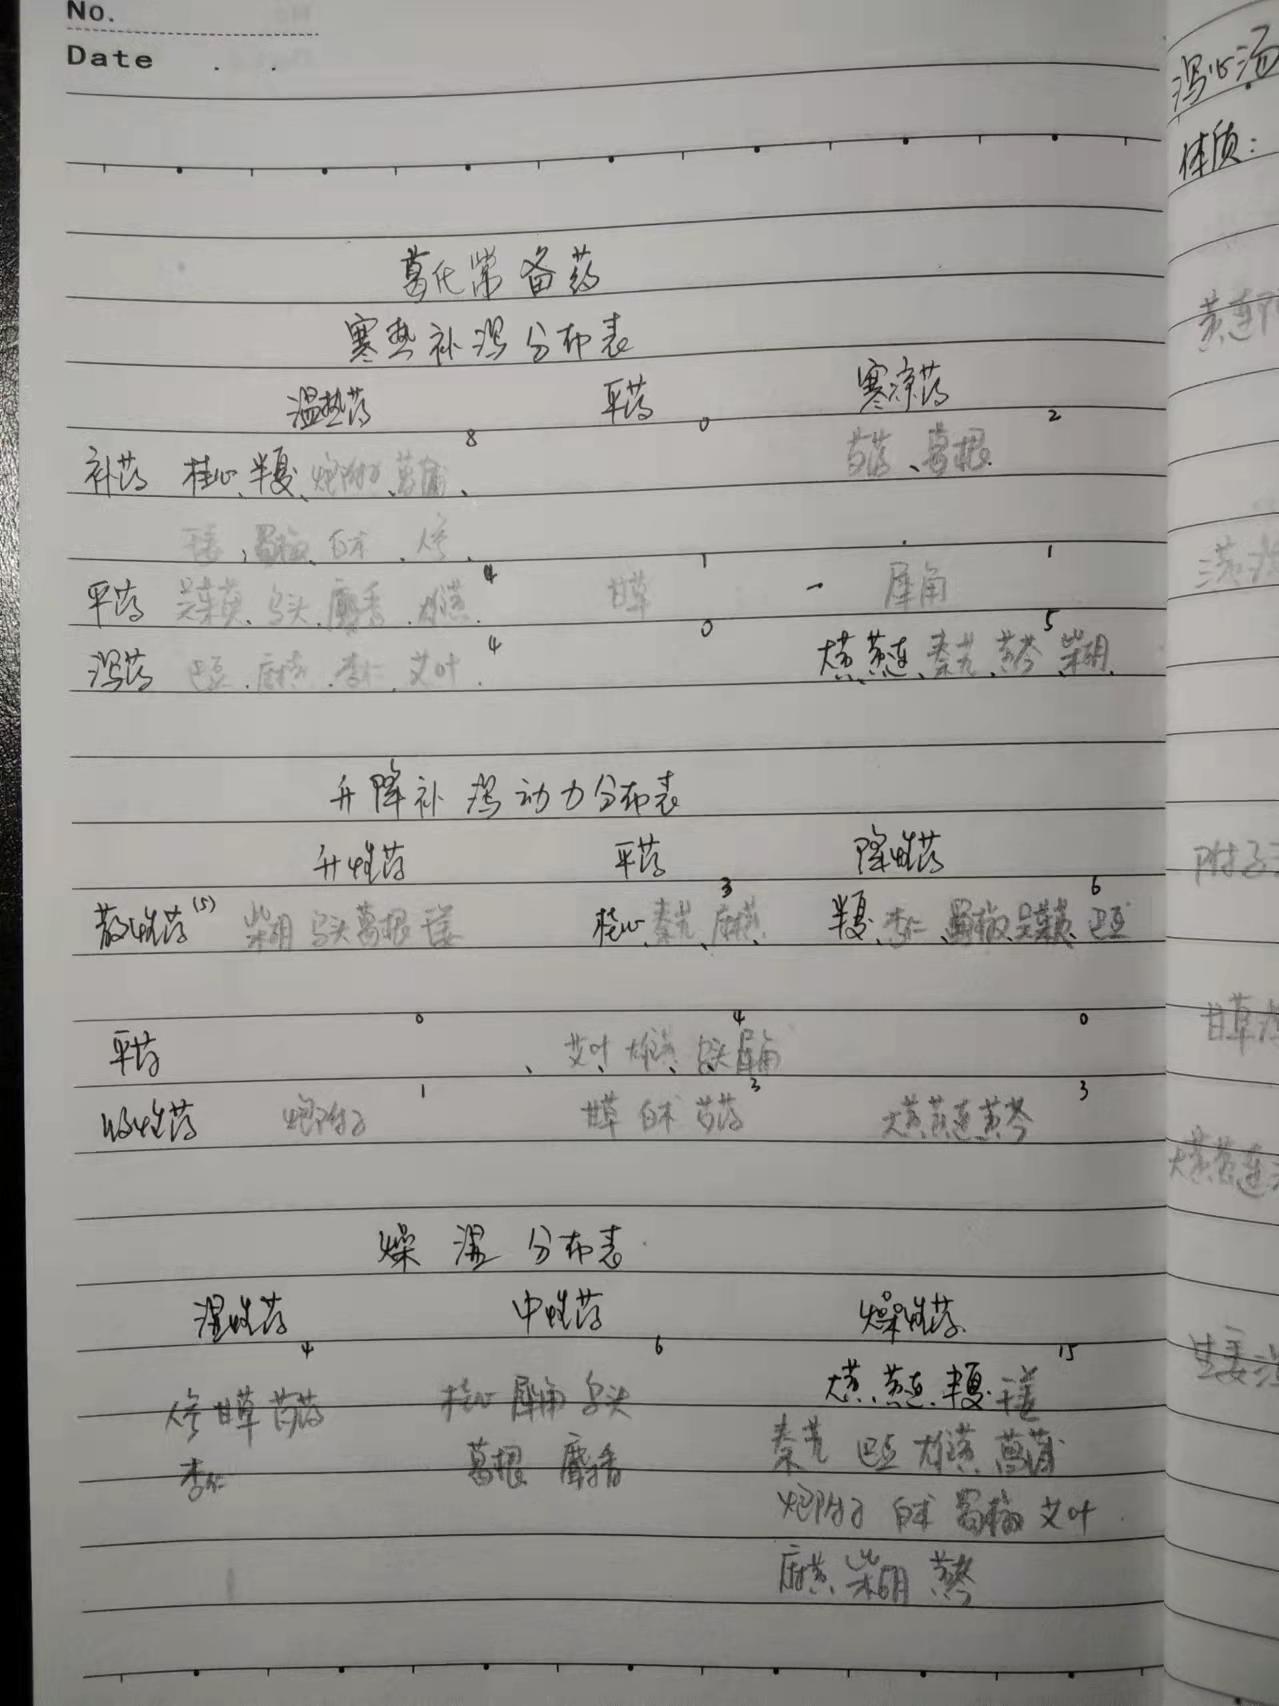 No.
Date . .
葛氏常备药
寒热补泻分布表
温热药 平药 寒凉药
8 0 2
补药 桂心、半夏、炮附子、菖蒲、 芍药、葛根
干姜、蜀椒、白术、人参、
4 1 1
平药 吴茱萸、乌头、麝香、雄黄、 甘草 犀角
4 0 5
泻药 巴豆、麻黄、杏仁、艾叶、 大黄、黄连、秦艽、黄芩、柴胡、
升降补泻动力分布表
升性药 平药 降性药
3 6
散性药(5) 柴胡 乌头 葛根 干姜 桂心、秦艽、麻黄、 半夏、杏仁、蜀椒、吴茱萸、巴豆
0 4 0
平药 艾叶、雄黄、乌头、犀角
1 3 3
收性药 炮附子 甘草 白术 芍药 大黄 黄连 黄芩
燥湿分布表
湿性药 中性药 燥性药
4 6 15
人参 甘草 芍药 桂心 犀角 乌头 大黄、黄连、半夏、干姜
杏仁 葛根 麝香 秦艽 巴豆 雄黄 菖蒲
炮附子 白术 蜀椒 艾叶
麻黄 柴胡 黄芩
泻心汤
体质：
黄连
附子
甘草
大黄黄连
生姜